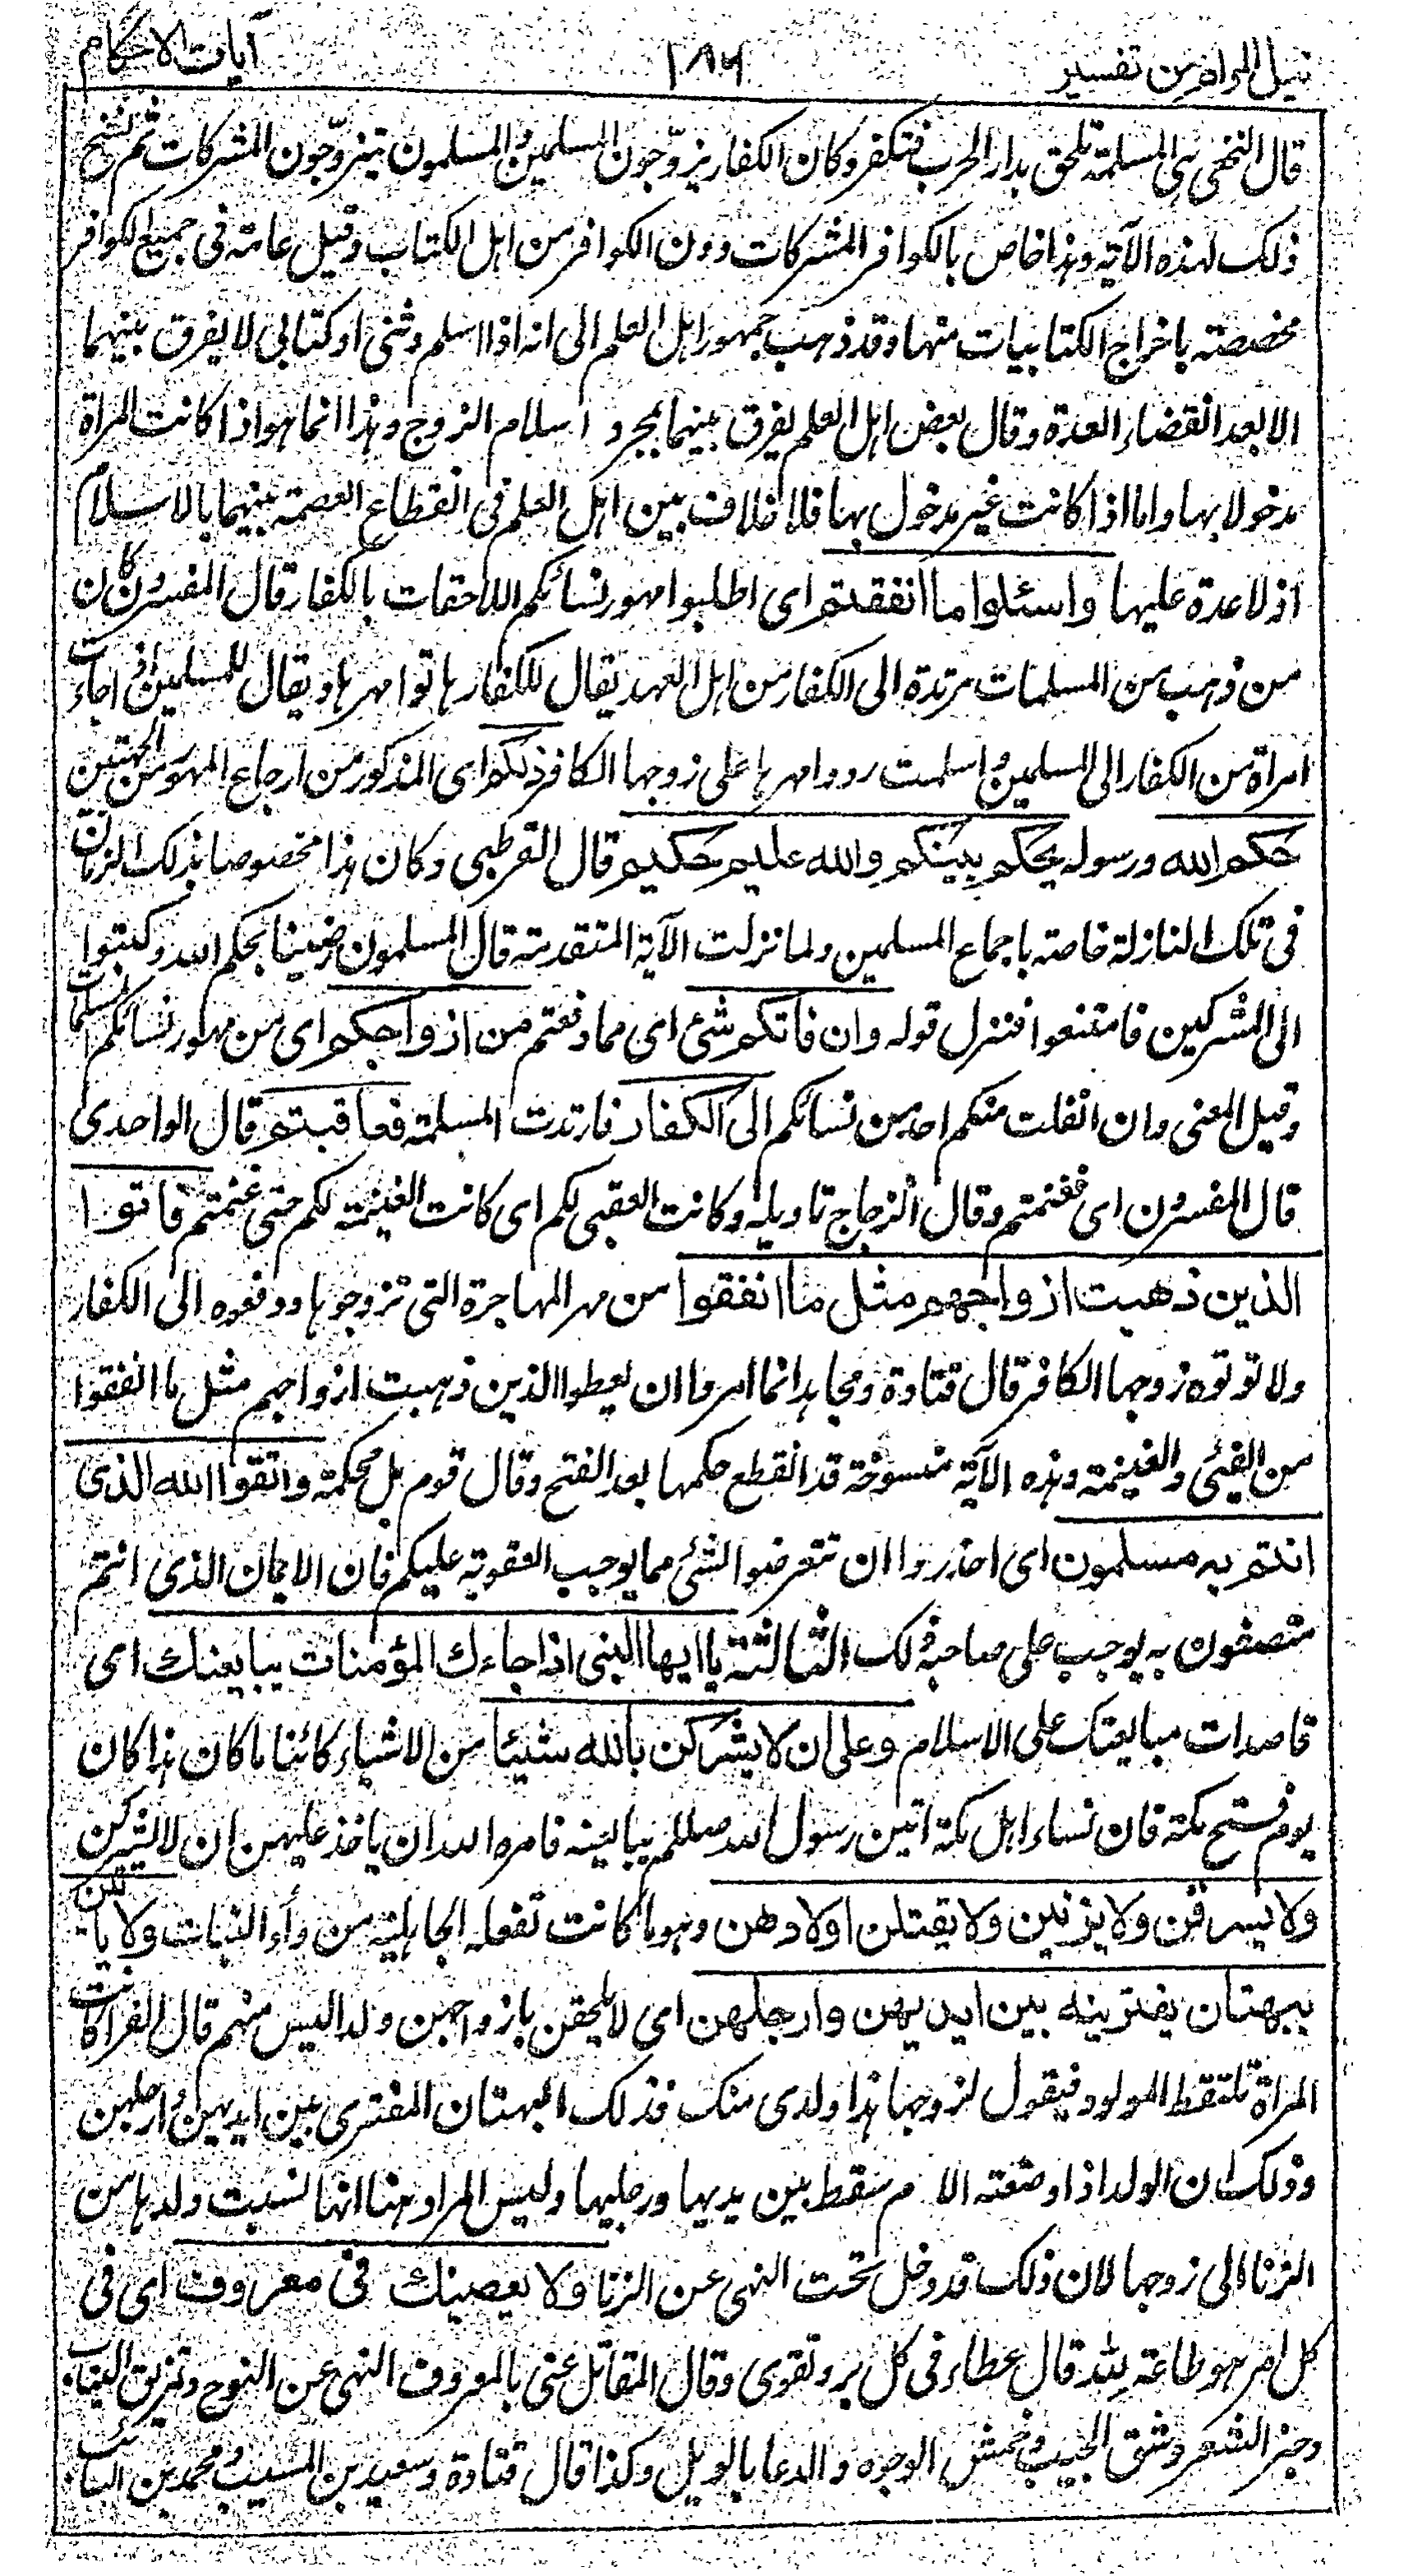 نيل المرام من تفسير ١٨٦ آيات الاحكام
قال النخعي هي المسلمة تلحق بدار الحرب فتكفر وكان الكفار يزوّجون المسلمين والمسلمون يتزوّجون المشركات ثم نسخ
ذلك لهذه الآية وهذا خاص بالكوافر المشركات دون الكوافر من اهل الكتاب وقيل عامة في جميع الكوافر
مخصصة باخراج الكتابيات منها وقد ذهب جمهور اهل العلم الى انه اذا اسلم وثني او كتابي لا يفرق بينهما
الا بعد انقضاء العدة وقال بعض اهل العلم يفرق بينهما بمجرد اسلام الزوج وهذا انما هو اذا كانت المراة
مدخولا بها واما اذا كانت غير مدخول بها فلا خلاف بين اهل العلم في انقطاع العصمة بينهما بالاسلام
اذ لا عدة عليها واسئلوا ما انفقتم اي اطلبوا مهور نسائكم اللاحقات بالكفار قال المفسرون كان
من ذهب من المسلمات مرتدة الى الكفار من اهل العهد يقال للكفار هاتوا مهرها ويقال للمسلمين اذا جاءت
امراة من الكفار الى المسلمين واسلمت ردوا مهرها على زوجها الكافر ذلكم اي المذكور من ارجاع المهور من الجهتين
حكم الله ورسوله يحكم بينكم والله عليم حكيم قال القرطبي وكان هذا مخصوصا بذلك الزمان
في تلك النازلة خاصة باجماع المسلمين ولما نزلت الآية المتقدمة قال المسلمون رضينا بحكم الله وكتبوا
الى المشركين فامتنعوا فنزل قوله وان فاتكم شئ اي مما دفعتم من ازواجكم اي من مهور نسائكم المسلمات
وقيل المعنى وان انفلت منكم احد من نسائكم الى الكفار فارتدت المسلمة فعاقبتم قال الواحدي
قال المفسرون اي فغنمتم وقال الزجاج تاويله وكانت العقبى لكم اي كانت الغنيمة لكم حتى غنمتم فاتوا
الذين ذهبت ازواجهم مثل ما انفقوا من مهر المهاجرة التي تزوجوها ودفعوه الى الكفار
ولا توتوه زوجها الكافر قال قتادة ومجاهد انما امروا ان يعطوا الذين ذهبت ازواجهم مثل ما انفقوا
من الفيئ والغنيمة وهذه الآية منسوخة قد انقطع حكمها بعد الفتح وقال قوم بل محكمة واتقوا الله الذي
انتم به مسلمون اي احذروا ان تتعرضوا لشئ مما يوجب العقوبة عليكم فان الايمان الذي انتم
متصفون به يوجب على صاحبه ذلك الثالثة يا ايها النبي اذا جاءك المؤمنات يبايعنك اي
قاصدات مبايعتك على الاسلام وعلى ان لا يشركن بالله شيئا من الاشياء كائنا ما كان هذا كان
يوم فتح مكة فان نساء اهل مكة اتين رسول الله صلعم يبايعنه فامره الله ان ياخذ عليهن ان لا يشركن
ولا يسرقن ولا يزنين ولا يقتلن اولادهن وهو ما كانت تفعله الجاهلية من وأد البنات ولا ياتين
ببهتان يفترينه بين ايديهن وارجلهن اي لا يلحقن بازواجهن ولدا ليس منهم قال الفرا كانت
المراة تلتقط المولود فيقول لزوجها هذا ولدي منك فذلك البهتان المفترى بين ايديهن وارجلهن
وذلك ان الولد اذا وضعته الام سقط بين يديها ورجليها وليس المراد هنا انها نسبت ولدها من
الزنا الى زوجها لان ذلك قد دخل تحت النهي عن الزنا ولا يعصينك في معروف اي في
كل امر هو طاعة لله قال عطاء في كل بر وتقوى وقال المقاتل عنى بالمعروف النهي عن النوح وتمزيق الثياب
وجز الشعر وشق الجيب وخمش الوجوه والدعا بالويل وكذا قال قتادة وسعيد بن المسيب ومحمد بن السائب